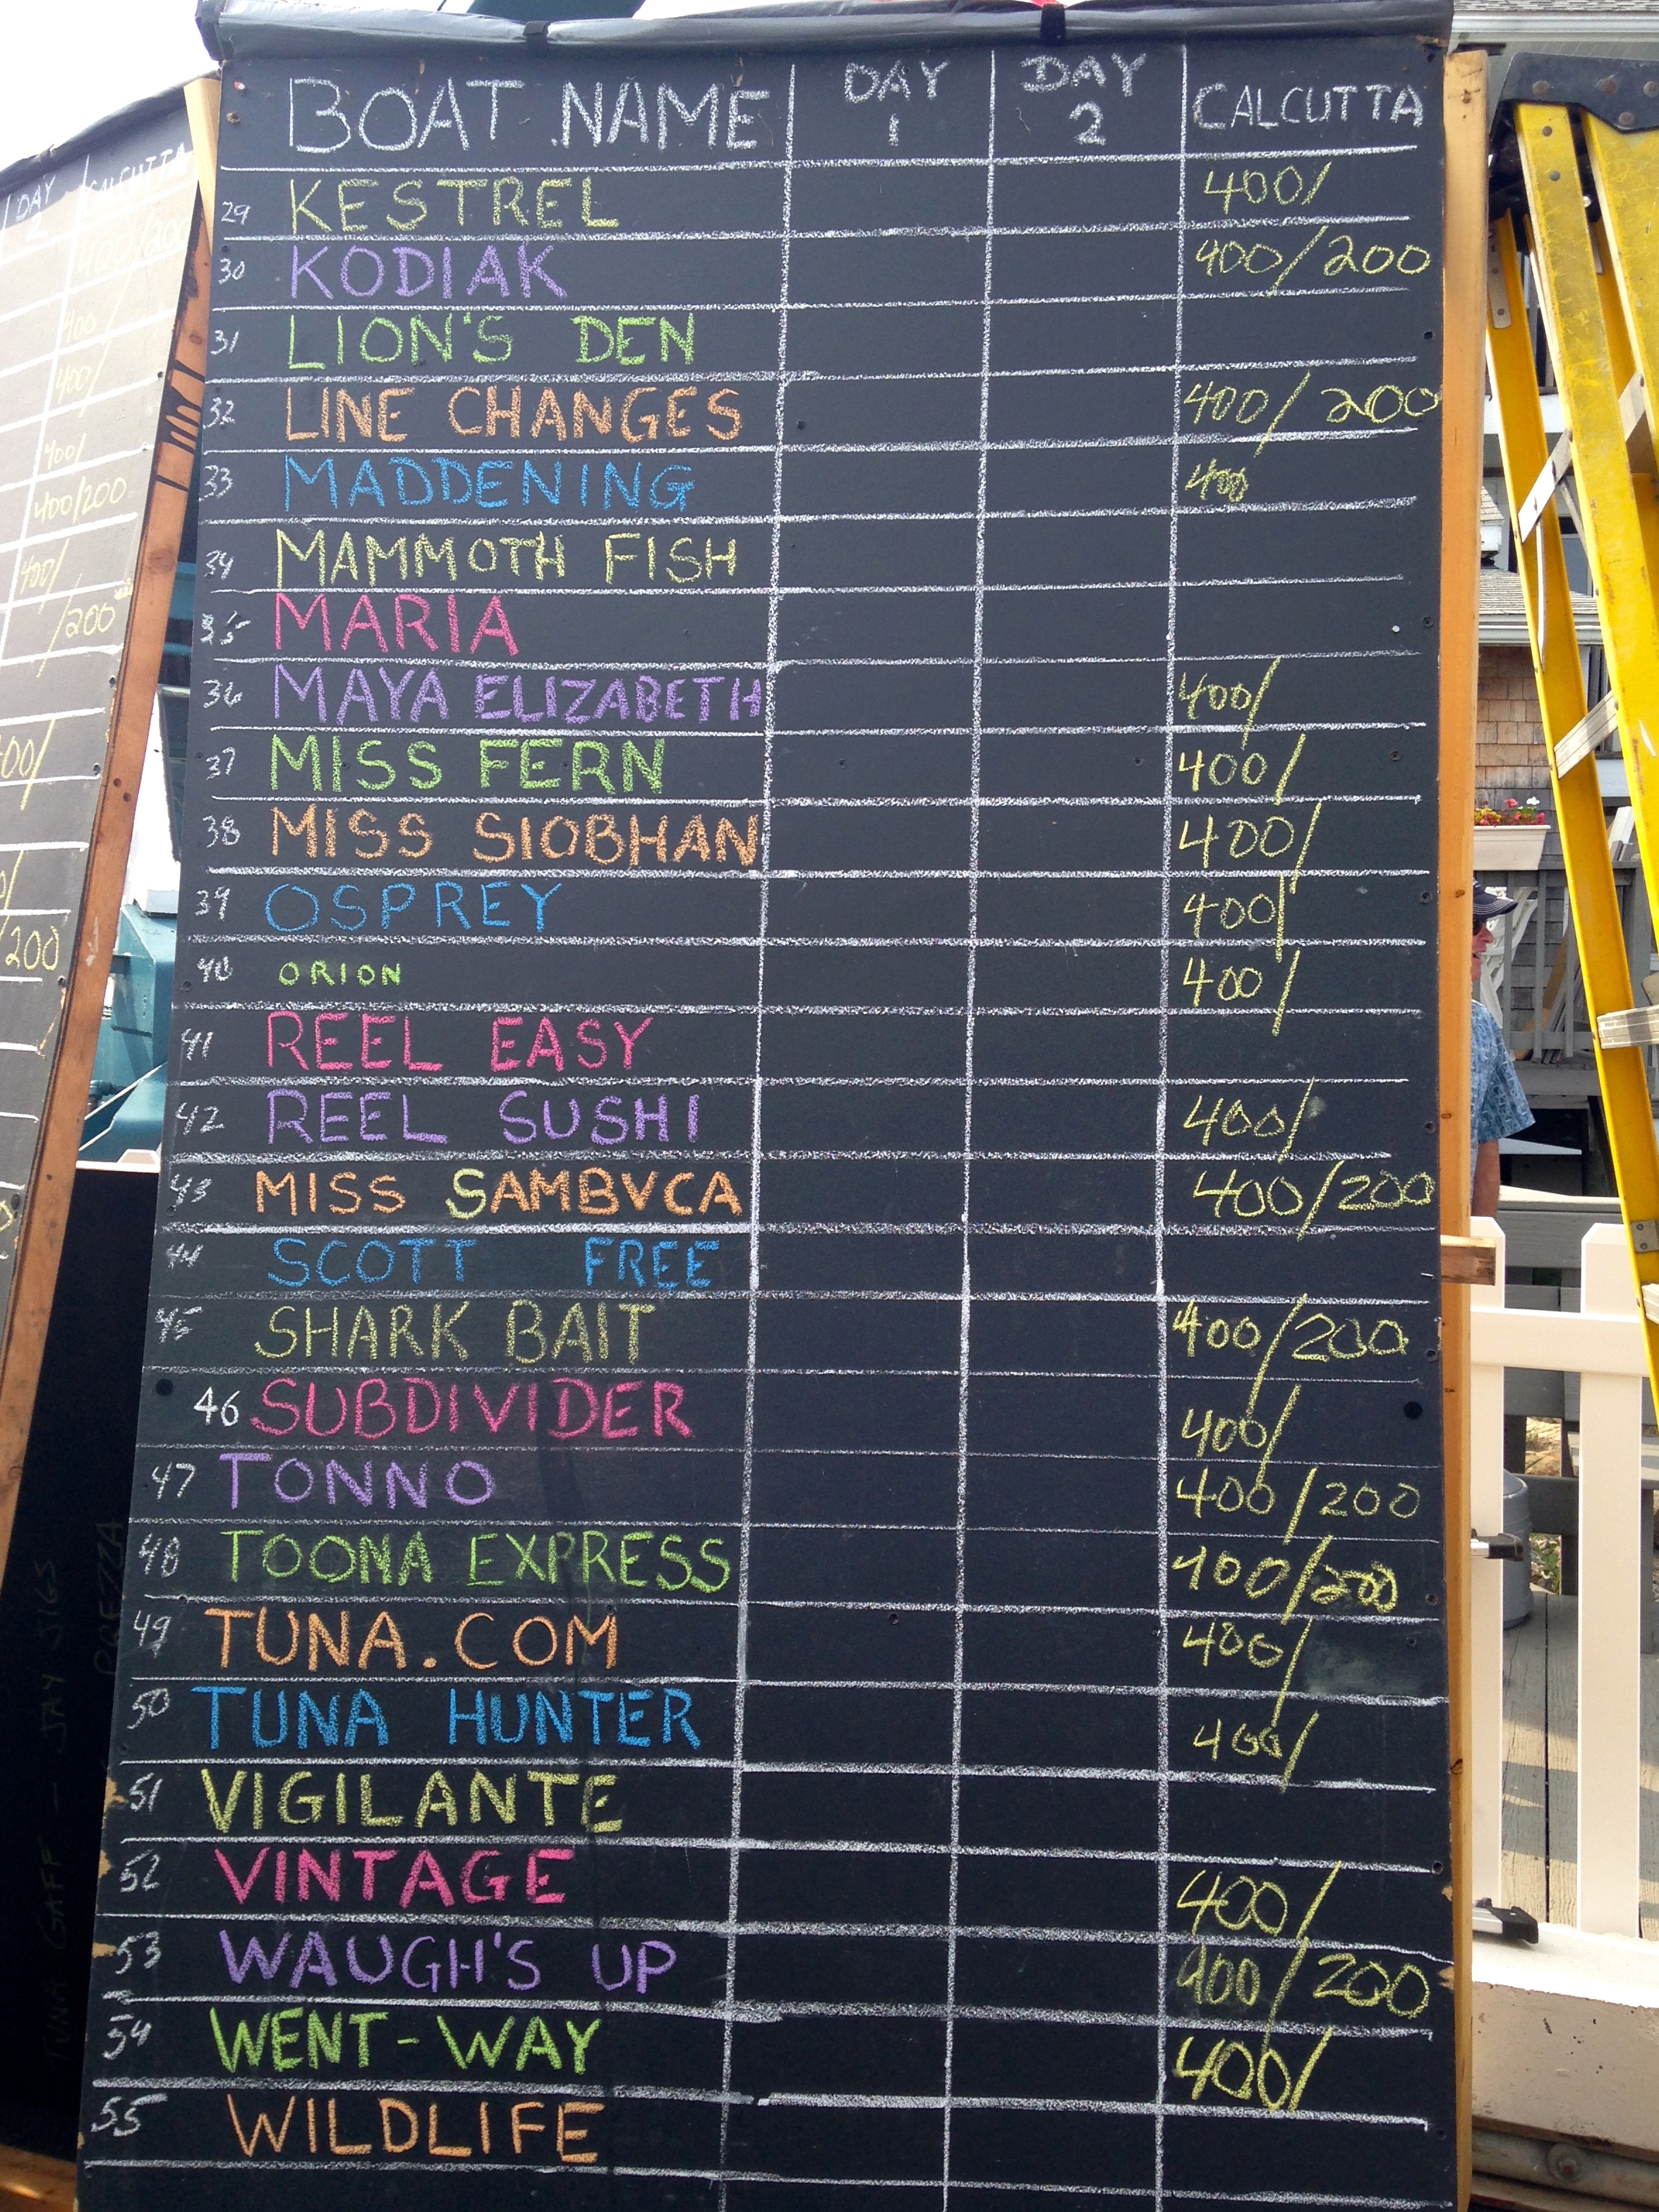 BOAT NAME DAY 1 DAY 2 CALCUTTA
29 KESTREL 400/
30 KODIAK 400/200
31 LION'S DEN
32 LINE CHANGES 400/200
33 MADDENING 400
34 MAMMOTH FISH
35 MARIA
36 MAYA ELIZABETH 400/
37 MISS FERN 400/
38 MISS SIOBHAN 400/
39 OSPREY 400/
40 ORION 400/
41 REEL EASY
42 REEL SUSHI 400/
43 MISS SAMBVCA 400/200
44 SCOTT FREE
45 SHARK BAIT 400/200
46 SUBDIVIDER 400/
47 TONNO 400/200
48 TOONA EXPRESS 400/200
49 TUNA.COM 400/
50 TUNA HUNTER 400/
51 VIGILANTE
52 VINTAGE 400/
53 WAUGH'S UP 400/200
54 WENT-WAY 400/
55 WILDLIFE
DAY 2 CALCUTTA
400/
400/
400/
400/200
400/
/200
00/
/200
TUNA GAFF - JAY JIGS